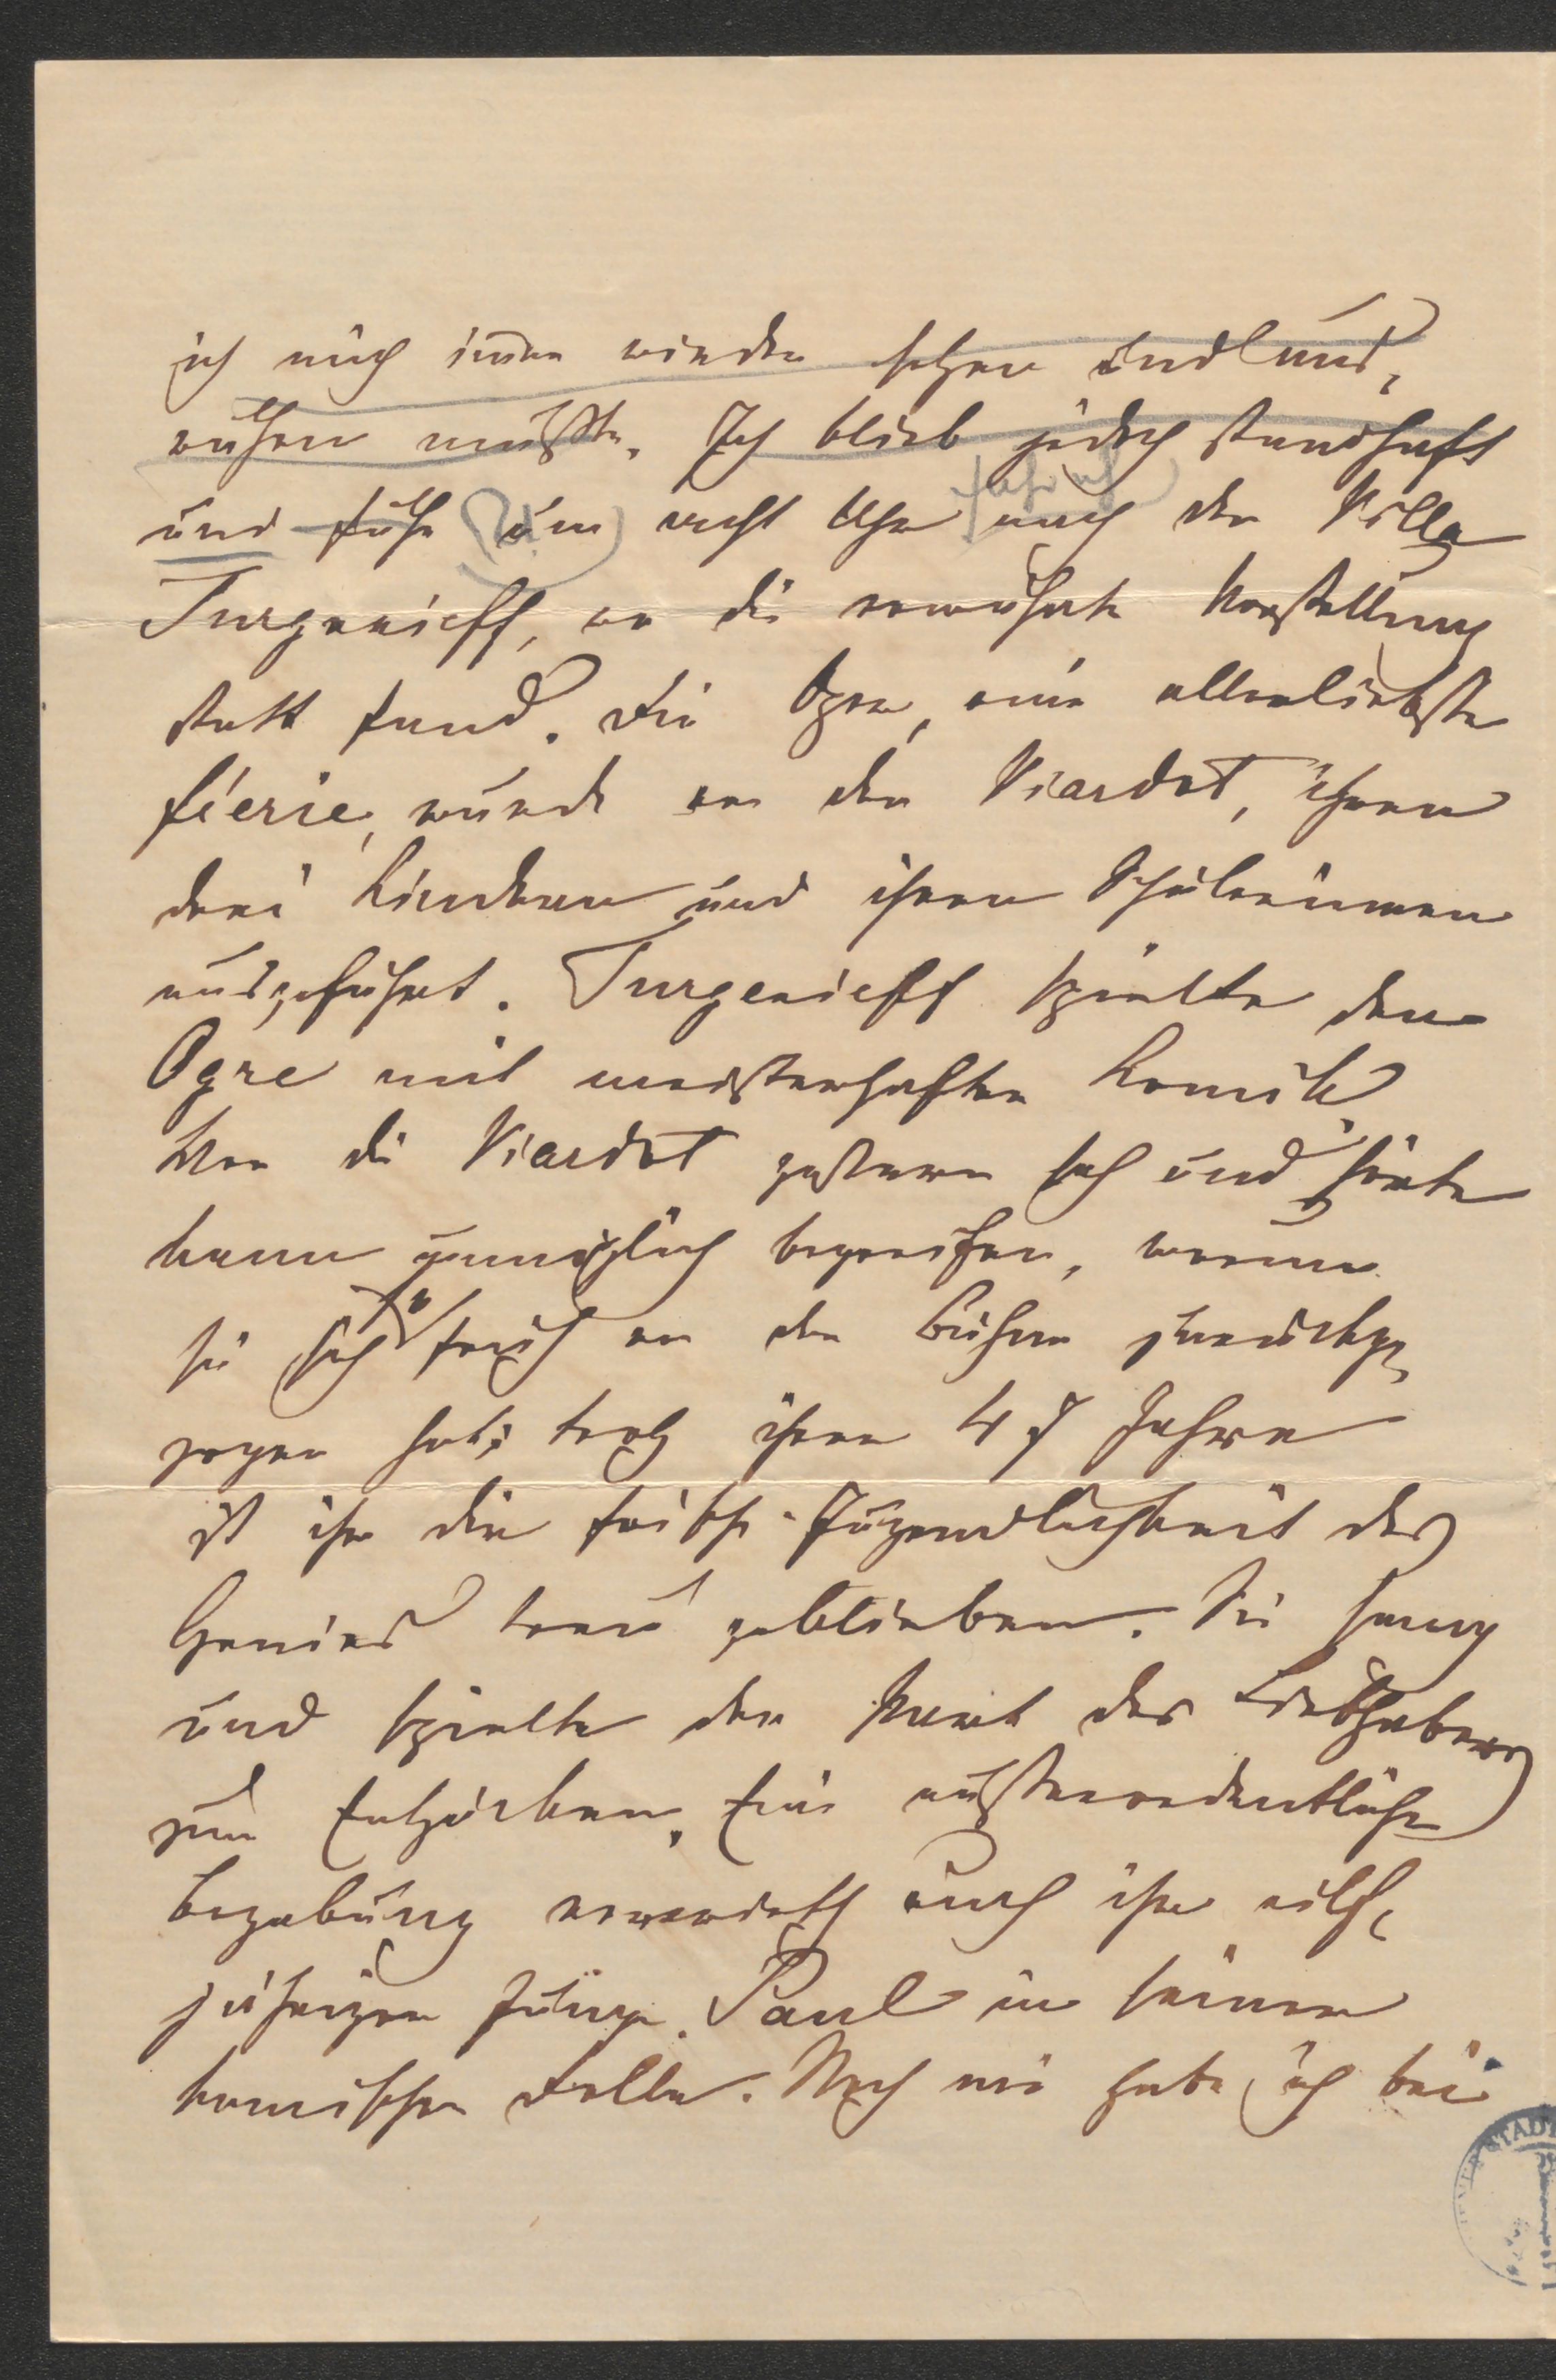 ich mich immer wieder setzen und aus-
ruhen mußte. Ich blieb jedoch standhaft
und fuhr um acht Uhr nach der Villa
Turgenieff, wo die erwähnte Vorstellung
statt fand. Die Oper, eine allerliebste
féerie, wurde von der Viardot, ihren
drei Kindern und ihren Schülerinnen
ausgeführt. Turgenieff spielte den
Ogre mit meisterhafter Komik.
Wer die Viardot gestern sah und hörte
kann unmöglich begreifen, warum
sie sich so früh von der Bühne zurückge-
zogen hat; trotz ihrer 47 Jahre
ist ihr die frische Jugendlichkeit des
Genies treu geblieben. Sie sang
und spielte den Part des Liebhabers
zum Entzücken. Eine außerordentliche
Begabung verrieth auch ihr eilf-
jähriger Junge Paul in seiner
komischen Rolle. Noch nie habe ich bei
STADT